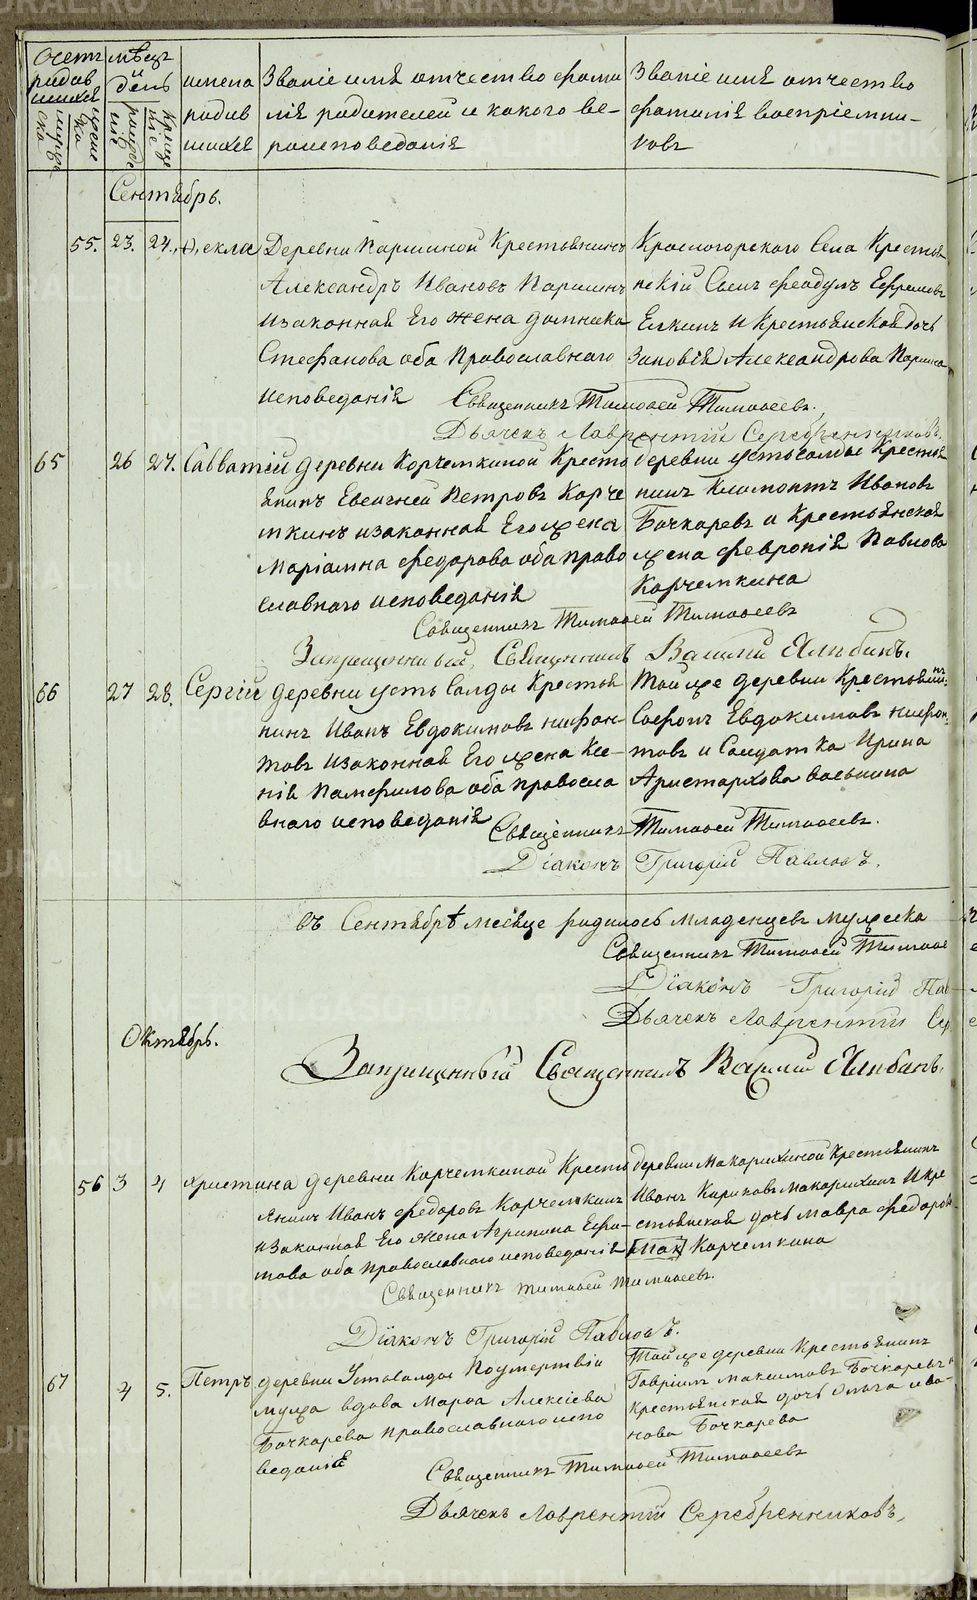 METRIKI.GASO-URAL.RU
Счетъ родившихся
мужеска
женска
мѣсяцъ и день
рожденіе
крещеніе
имена родившихся
Званіе имя отчество фамилія родителей и какого вероисповеданія
Званіе имя отчество фамилія воспріемниковъ
Сентябрь.
55. 23. 24. Ѳекла
Деревни Паршиной Крестьянинъ
Александръ Ивановъ Паршинъ
изаконная Его жена Домника
Стефанова оба Православнаго
исповеданія
Красногорскаго Села Крестьян
скій Сынъ Феодулъ Ефремовъ
Елкинъ и Крестьянская дочь
Зиновія Александрова Паршина
Священникъ Тимоѳей Тимоѳеевъ.
Дьячекъ Лаврентій Серебренниковъ.
65 26 27. Савватій
деревни Корчемкиной Кресть
янинъ Евгеней Петровъ Корче
мкинъ изаконная Его жена
Маріамна Федорова оба право
славнаго исповеданія
деревни усть солды Крестья
нинъ Климонтъ Ивановъ
Бочкаревъ и Крестьянская
жена Февронія Павлова
Корчемкина
Священникъ Тимоѳей Тимоѳеевъ
Запрещенный Священникъ Василій Ялибинъ.
66 27 28. Сергій
деревни усть Салды Крестья
нинъ Иванъ Евдокимовъ Нифон-
товъ изаконная Его жена Ксе-
нія Памфилова оба православ
внаго исповеданія
Тойже деревни Крестьянинъ
Софонъ Евдокимовъ Нифон-
товъ и Солдатка Ирина
Аристархова
Священникъ Тимоѳей Тимоѳеевъ.
Діаконъ Григорій Павловъ.
въ Сентябрѣ месяце родилось младенцевъ мужеска
Священникъ Тимоѳей Тимоѳе
Діаконъ Григорій Пав
Дьячекъ Лаврентій Се
Октябрь.
Запрещенный Священникъ Василій Ялибинъ.
56 3 4 Христина
деревни Корчемкиной Кресть
янинъ Иванъ Федоровъ Корчемкинъ
изаконная Его жена Агрипина Ефи-
мова оба православнаго исповеданія
деревни Макарихиной Крестьянинъ
Иванъ Макарихинъ и кре
стьянская дочь Мавра Федоров
Корчемкина
Священникъ Тимоѳей Тимоѳеевъ.
Діаконъ Григорій Павловъ.
67 4 5. Петръ.
деревни Устьсалды Поумертвіи
мужа вдова Марѳа Алексіева
Бочкарева православнаго испо
веданія
Тойже деревни Крестьянинъ
Гавріилъ Максимовъ Бочкаревъ и
крестьянская дочь Ольга Ива-
нова Бочкарева
Священникъ Тимоѳей Тимоѳеевъ
Дьячекъ Лаврентій Серебренниковъ,